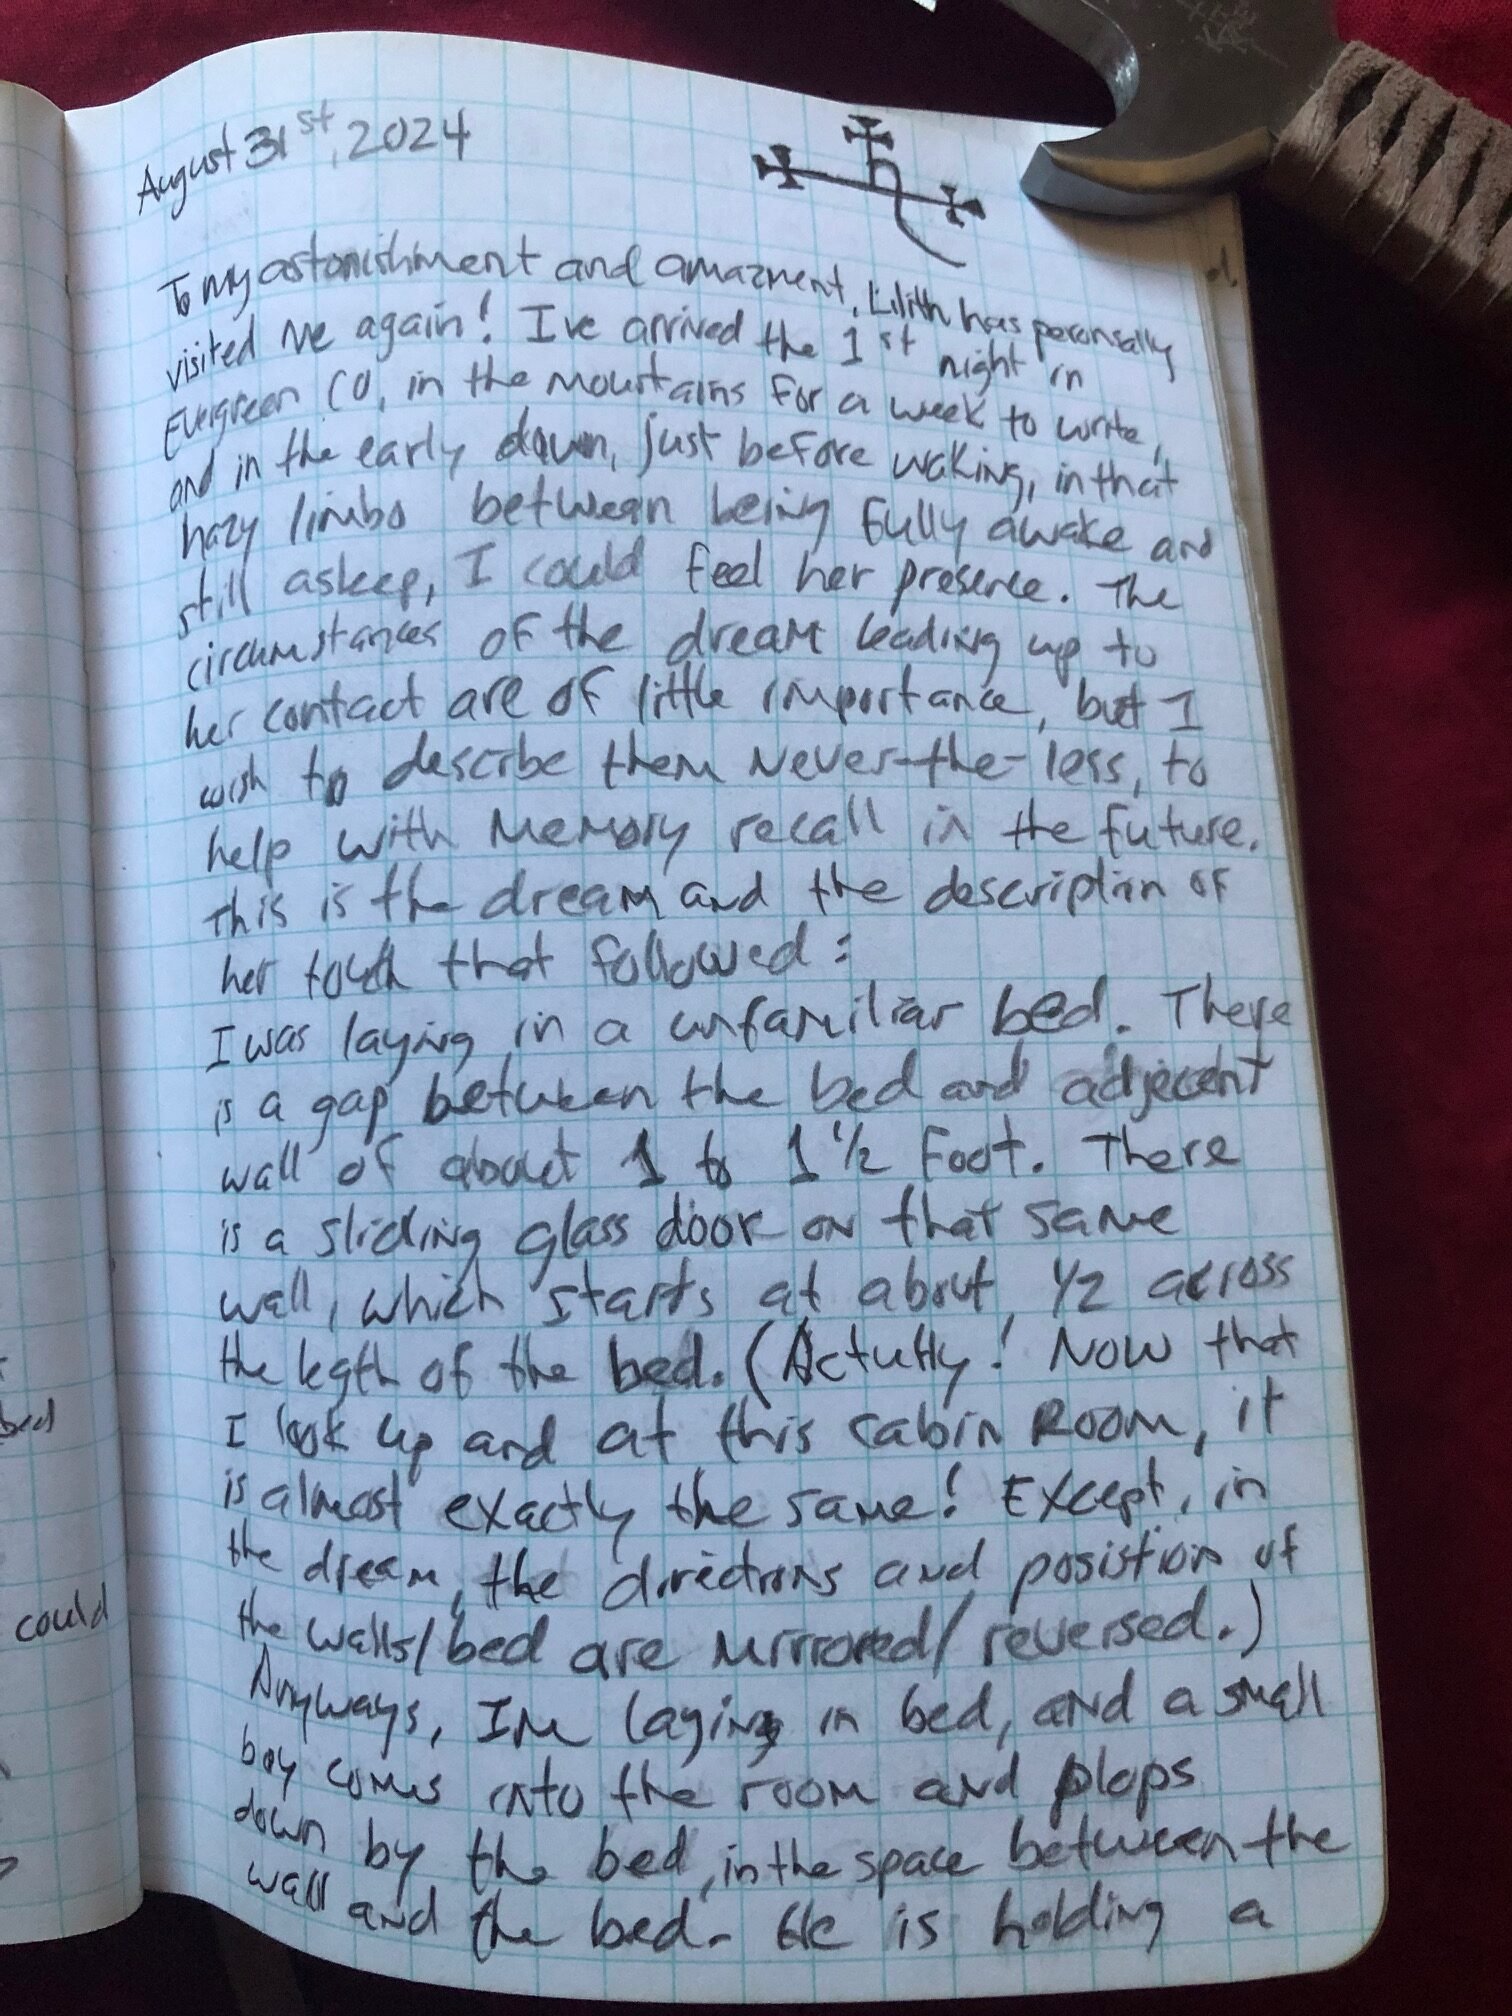 August 31st, 2024
To my astonishment and amazment, Lilith has peronsally
visited me again! I've arrived the 1st night in
Evergreen CO, in the mountains for a week to write,
and in the early dawn, just before waking, in that
hazy limbo between being fully awake and
still askeep, I could feel her presence. The
circumstances of the dream leading up to
her contact are of little importance, but I
wish to describe them never-the-less, to
help with memory recall in the future.
This is the dream and the description of
her touth that followed:
I was laying in a unfamiliar bed. There
is a gap between the bed and adjecent
wall of about 1 to 1 1/2 foot. There
is a sliding glass door on that same
wall, which starts at about 1/2 across
the legth of the bed. (Actutly! Now that
I look up and at this cabin room, it
is almost exactly the same! Except, in
the dream, the directions and posistion of
the walls/bed are mirrored/reversed.)
Anyways, Im laying in bed, and a small
boy comes into the room and plops
down by the bed, in the space between the
wall and the bed. He is holding a
bed
could